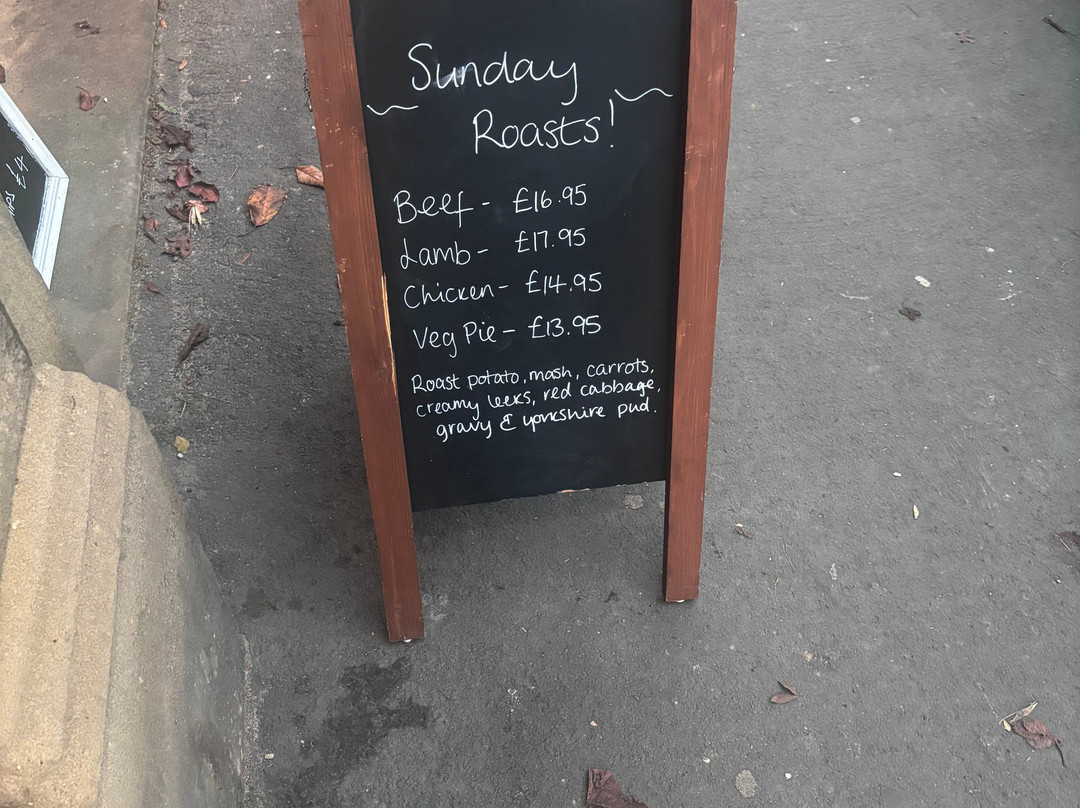 Sunday
Roasts!
Beef - £16.95
Lamb - £17.95
Chicken - £14.95
Veg Pie - £13.95
Roast potato, mash, carrots,
creamy leeks, red cabbage,
gravy & yorkshire pud.